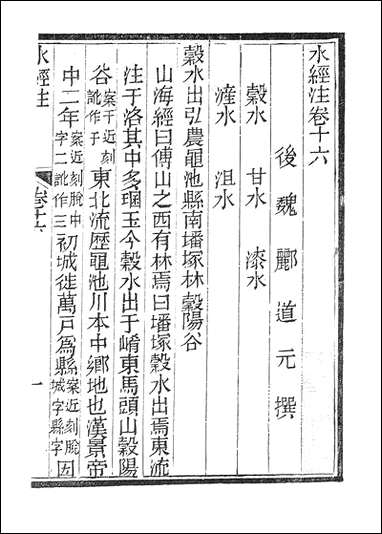 水經注卷十六
後魏酈道元撰
穀水　甘水　漆水
滻水　沮水
穀水出弘農黽池縣南墦塚林穀陽谷
山海經曰傅山之西有林焉曰墦塚穀水出焉東流
注于洛其中多珚玉今穀水出于崤東馬頭山穀陽
谷案于近刻訛作子東北流歷黽池川本中鄉地也漢景帝
中二年案近刻脫中字二訛作三初城徙萬戶爲縣案近刻脫城字縣字因
水經注
卷十六
一